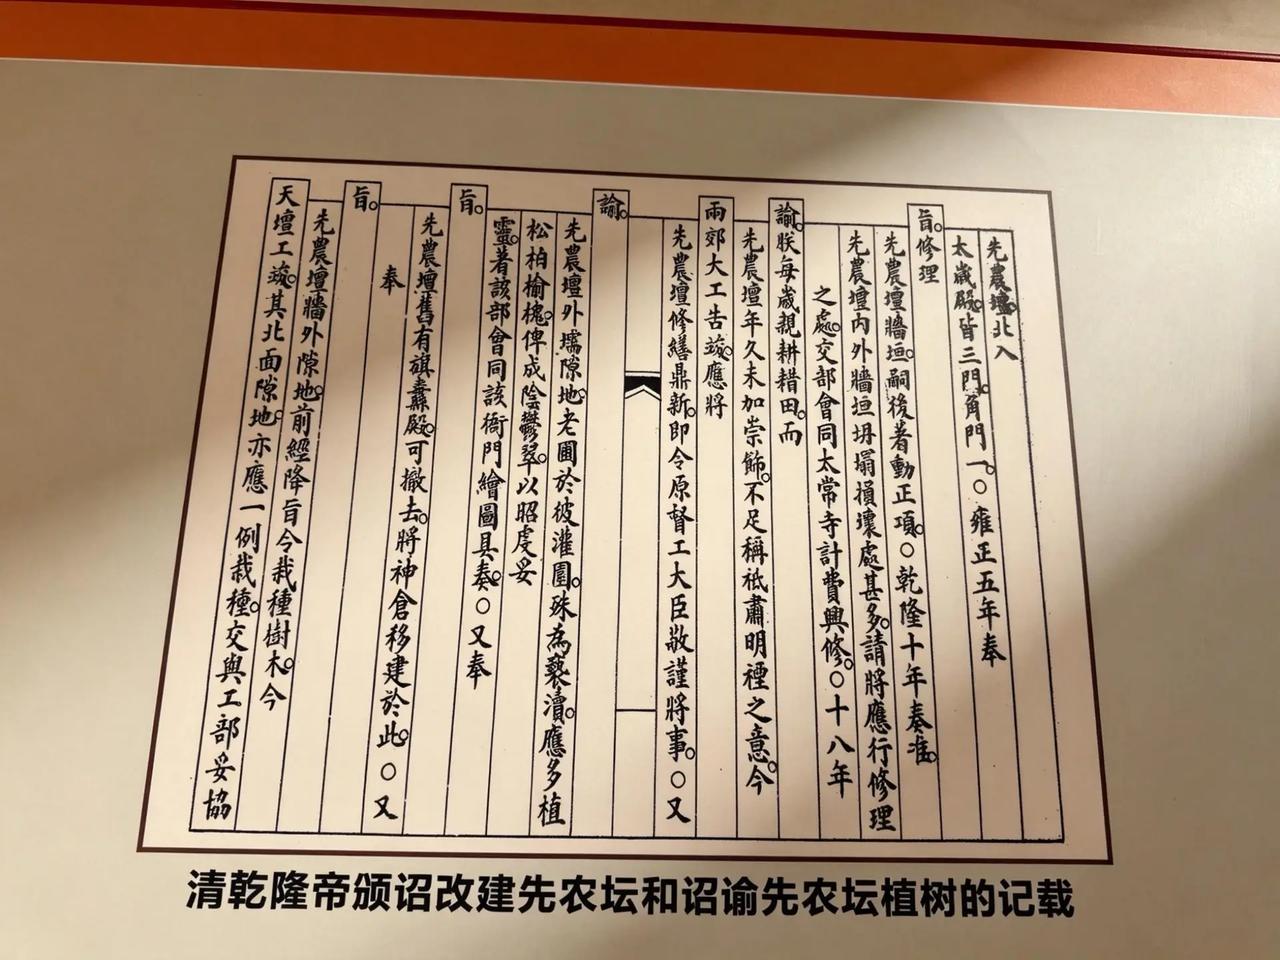 先農壇。北入
太歲殿。皆三門。角門一。○雍正五年奉
旨。修理
先農壇牆垣。嗣後著動正項。○乾隆十年奏准。
先農壇内外牆垣坍塌損壞處甚多。請將應行修理
之處。交部會同太常寺計費興修。○十八年
諭。朕每歲親耕耤田。而
先農壇年久未加崇飾。不足稱祗肅明禋之意。今
兩郊大工告竣。應將
先農壇修繕鼎新。即令原督工大臣敬謹將事。○又
諭。
先農壇外壖隙地。老圃於彼灌園。殊為褻瀆。應多植
松柏榆槐。俾成陰鬱翠。以昭虔妥
靈。著該部會同該衙門繪圖具奏。○又奉
旨。
先農壇舊有旗纛殿。可撤去。將神倉移建於此。○又
奉
旨。
先農壇牆外隙地。前經降旨令栽種樹木。今
天壇工竣。其北面隙地。亦應一例栽種。交與工部妥協
清乾隆帝颁诏改建先农坛和诏谕先农坛植树的记载